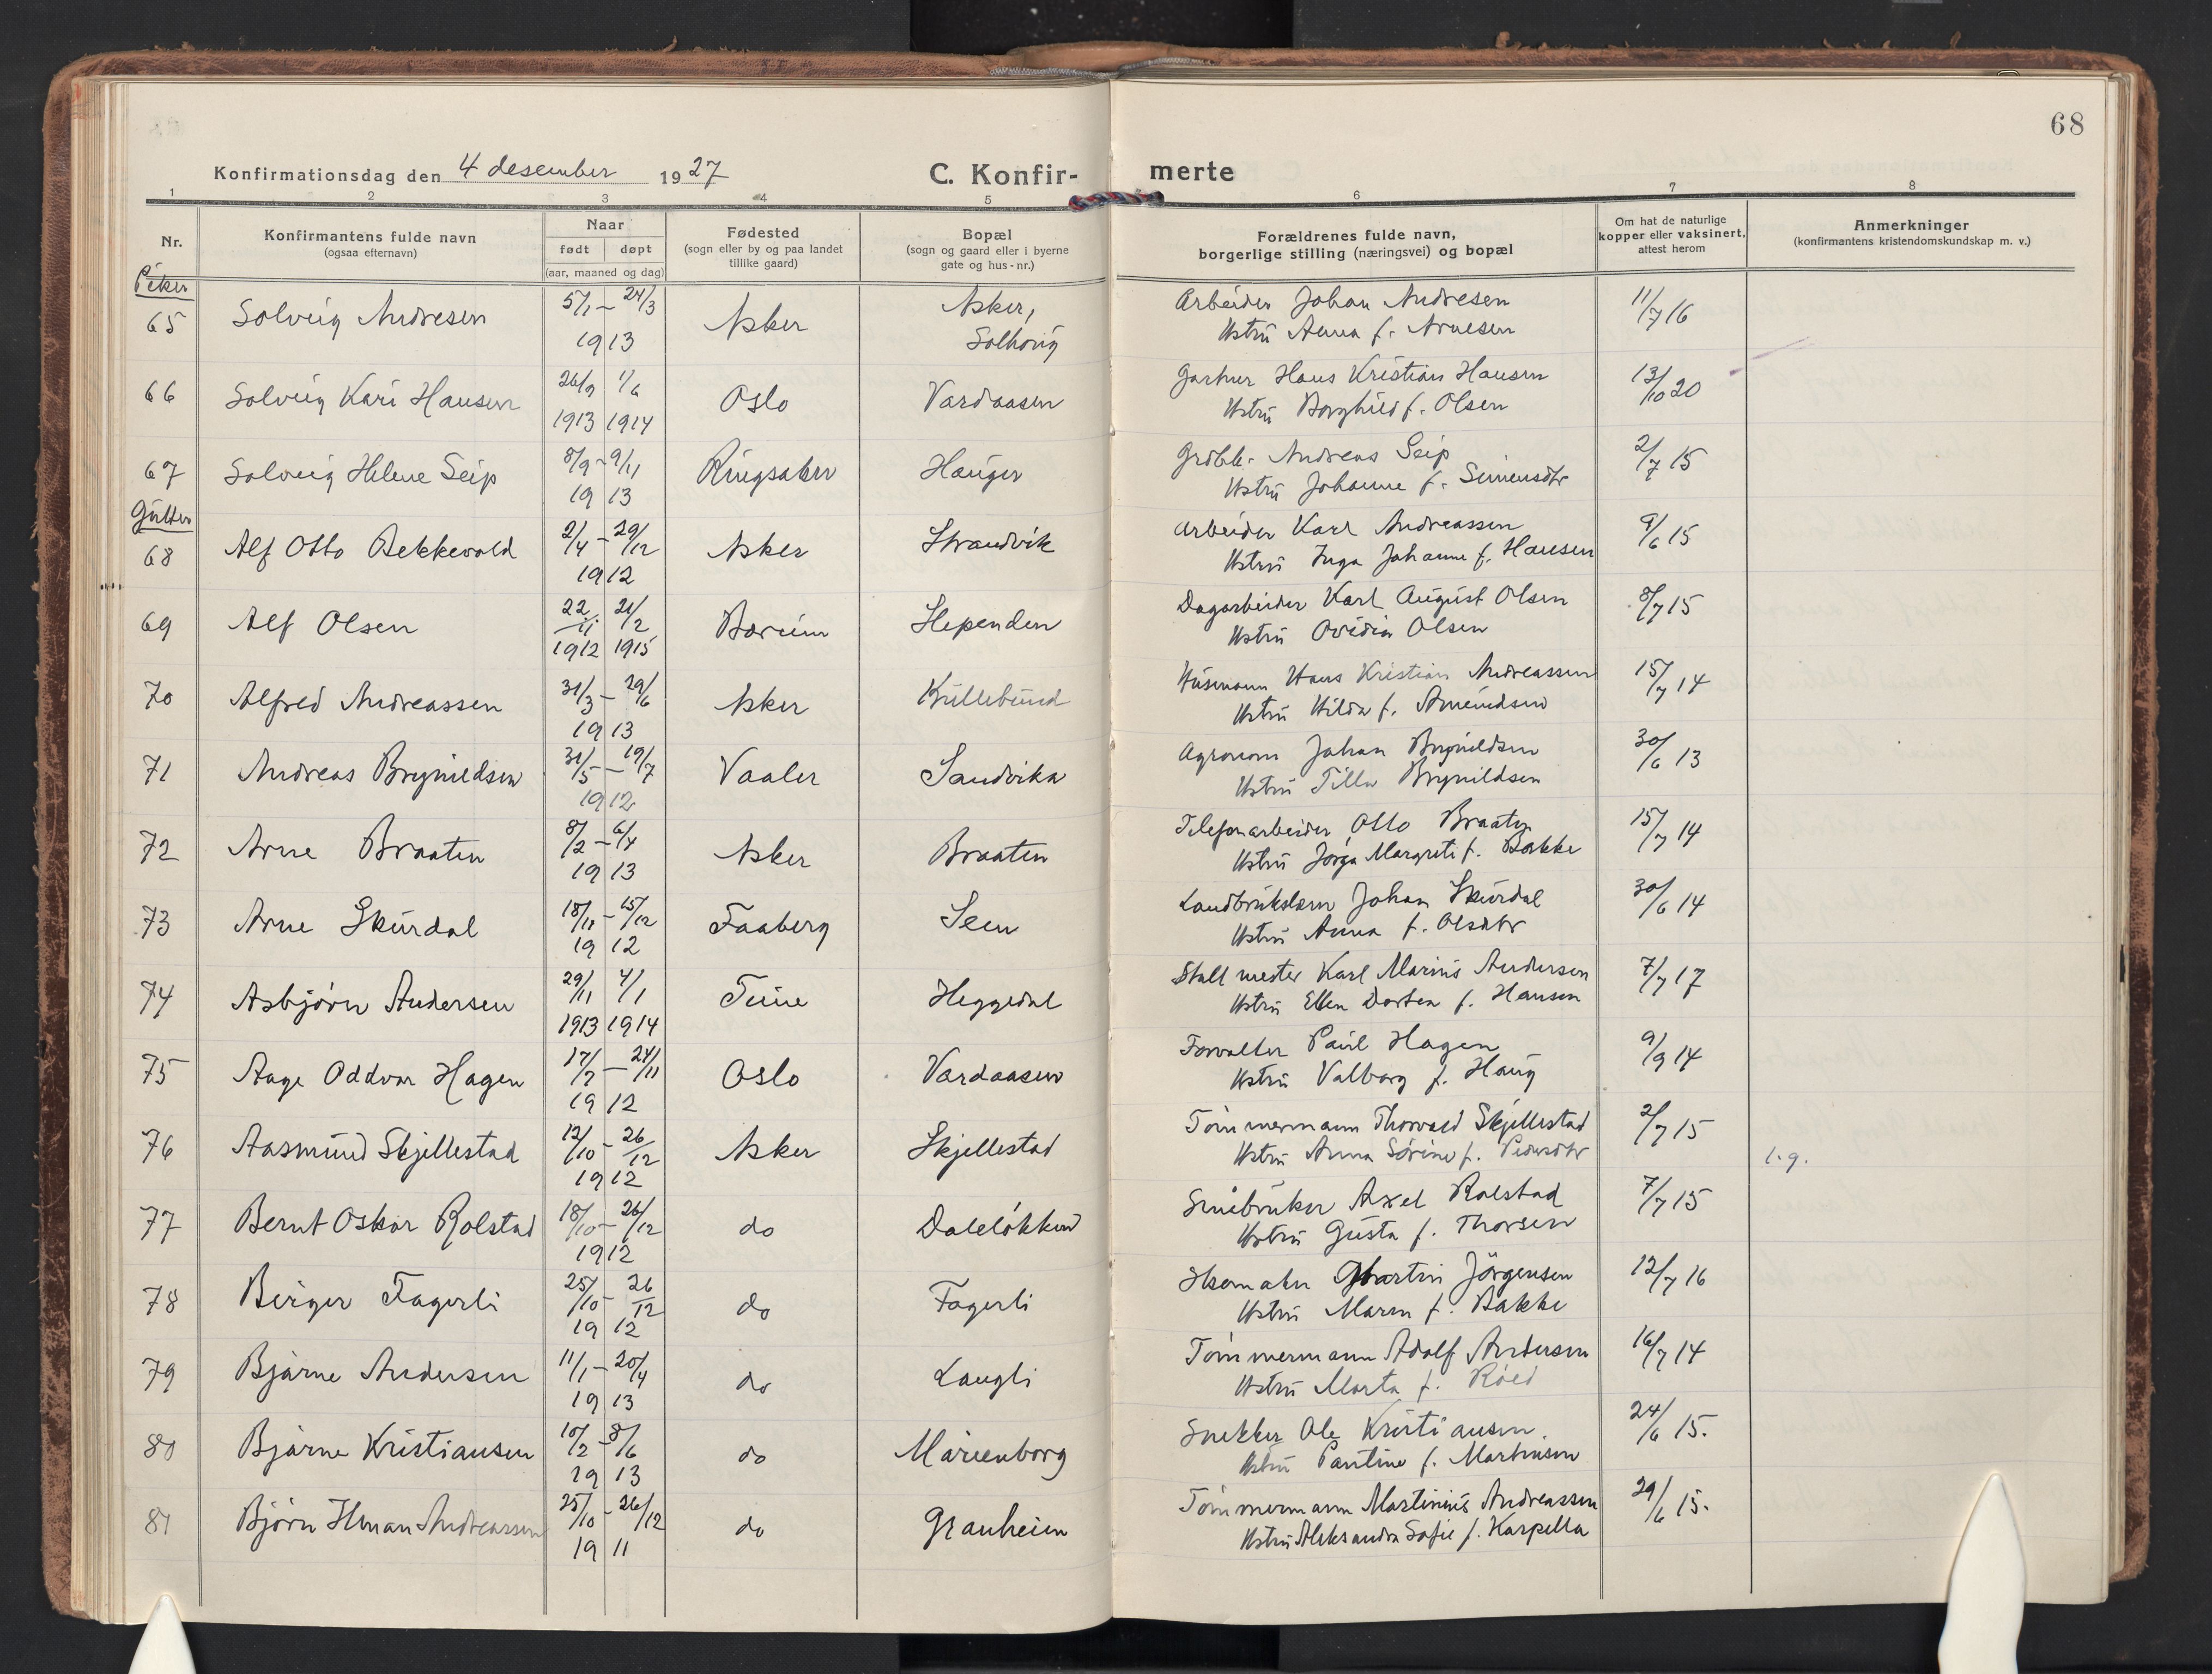 68
Konfirmationsdag den 4 desember 1927 C. Konfir- merte
1 2 3 4 5 6 7 8
Nr. Konfirmantens fulde navn (ogsaa efternavn) Naar født døpt (aar, maaned og dag) Fødested (sogn eller by og paa landet tillike gaard) Bopæl (sogn og gaard eller i byerne gate og hus-nr.) Forældrenes fulde navn, borgerlige stilling (næringsvei) og bopæl Om hat de naturlige kopper eller vaksinert, attest herom Anmerkninger (konfirmantens kristendomskundskap m. v.)
Piker
65 Solveig Andresen 5/1 – 24/3 1913 Asker Asker, Solhoug Arbeider Johan Andresen 11/7 16
Hstru Anna f. Arnesen
66 Solveig Kari Hansen 26/9 1/6 1913 1914 Oslo Vardaasen Gartner Hans Kristian Hansen 13/10 20
Hstru Borghild f. Olsen
67 Solveig Helene Seip 8/9 – 9/11 1913 Ringsaker Hauger Grdbr. Andreas Seip 2/7 15
Hstru Johanne f. Simensdtr
Gutter
68 Alf Otto Bekkevold 2/4 – 29/12 1912 Asker Strandvik Arbeider Karl Andreassen 9/6 15
Hstru Inga Johanne f. Hansen
69 Alf Olsen 22/11 21/2 1912 1915 Bærum Slependen Dagarbeider Karl August Olsen 8/7 15
Hstru Ovidia Olsen
70 Alfred Andreassen 31/3 – 29/6 1913 Asker Kullebund Husmann Hans Kristian Andreassen 15/7 14
Hstru Hilda f. Amundsen
71 Andreas Brynildsen 31/5 – 19/7 1912 Vaaler Sandvika Agronom Johan Brynildsen 30/6 13
Hstru Tilla Brynildsen
72 Arne Braaten 8/2 – 6/4 1913 Asker Braaten Telefonarbeider Otto Braaten 15/7 14
Hstru Jørga Margrete f. Bakke
73 Arne Skurdal 18/11 – 15/12 1912 Faaberg Seem Landbrukslærer Johan Skurdal 30/6 14
Hstru Anna f. Olsdtr
74 Asbjørn Andersen 29/11 4/1 1913 1914 Tune Heggedal Stallmester Karl Marius Andersen 7/7 17
Hstru Ellen Dortea f. Hansen
75 Aage Oddvar Hagen 17/7 – 24/11 1912 Oslo Vardaasen Forvalter Paul Hagen 9/9 14
Hstru Valborg f. Haug
76 Aasmund Skjellestad 12/10 – 26/12 1912 Asker Skjellestad Tømmermann Thorvald Skjellestad 2/7 15
Hstru Anna Sørine f. Pedersdtr l.g.
77 Bernt Oskar Rolstad 18/10 – 26/12 1912 do Daleløkken Småbruker Axel Rolstad 7/7 15
Hstru Gusta f. Thorsen
78 Birger Fagerli 25/10 – 26/12 1912 do Fagerli Skomaker Martin Jørgensen 12/7 16
Hstru Maren f. Bakke
79 Bjarne Andersen 11/1 – 20/4 1913 do Langli Tømmermann Adolf Andersen 16/7 14
Hstru Marta f. Røed
80 Bjarne Kristiansen 10/2 – 8/6 1913 do Marienborg Snekker Ole Kristiansen. 24/6 15.
Hstru Pauline f. Martinsen
81 Bjørn Ilman Andreassen 25/10 – 26/12 1911 do Granheim Tømmermann Martinius Andreassen 29/6 15.
Hstru Aleksandra Sofie f. Karpella